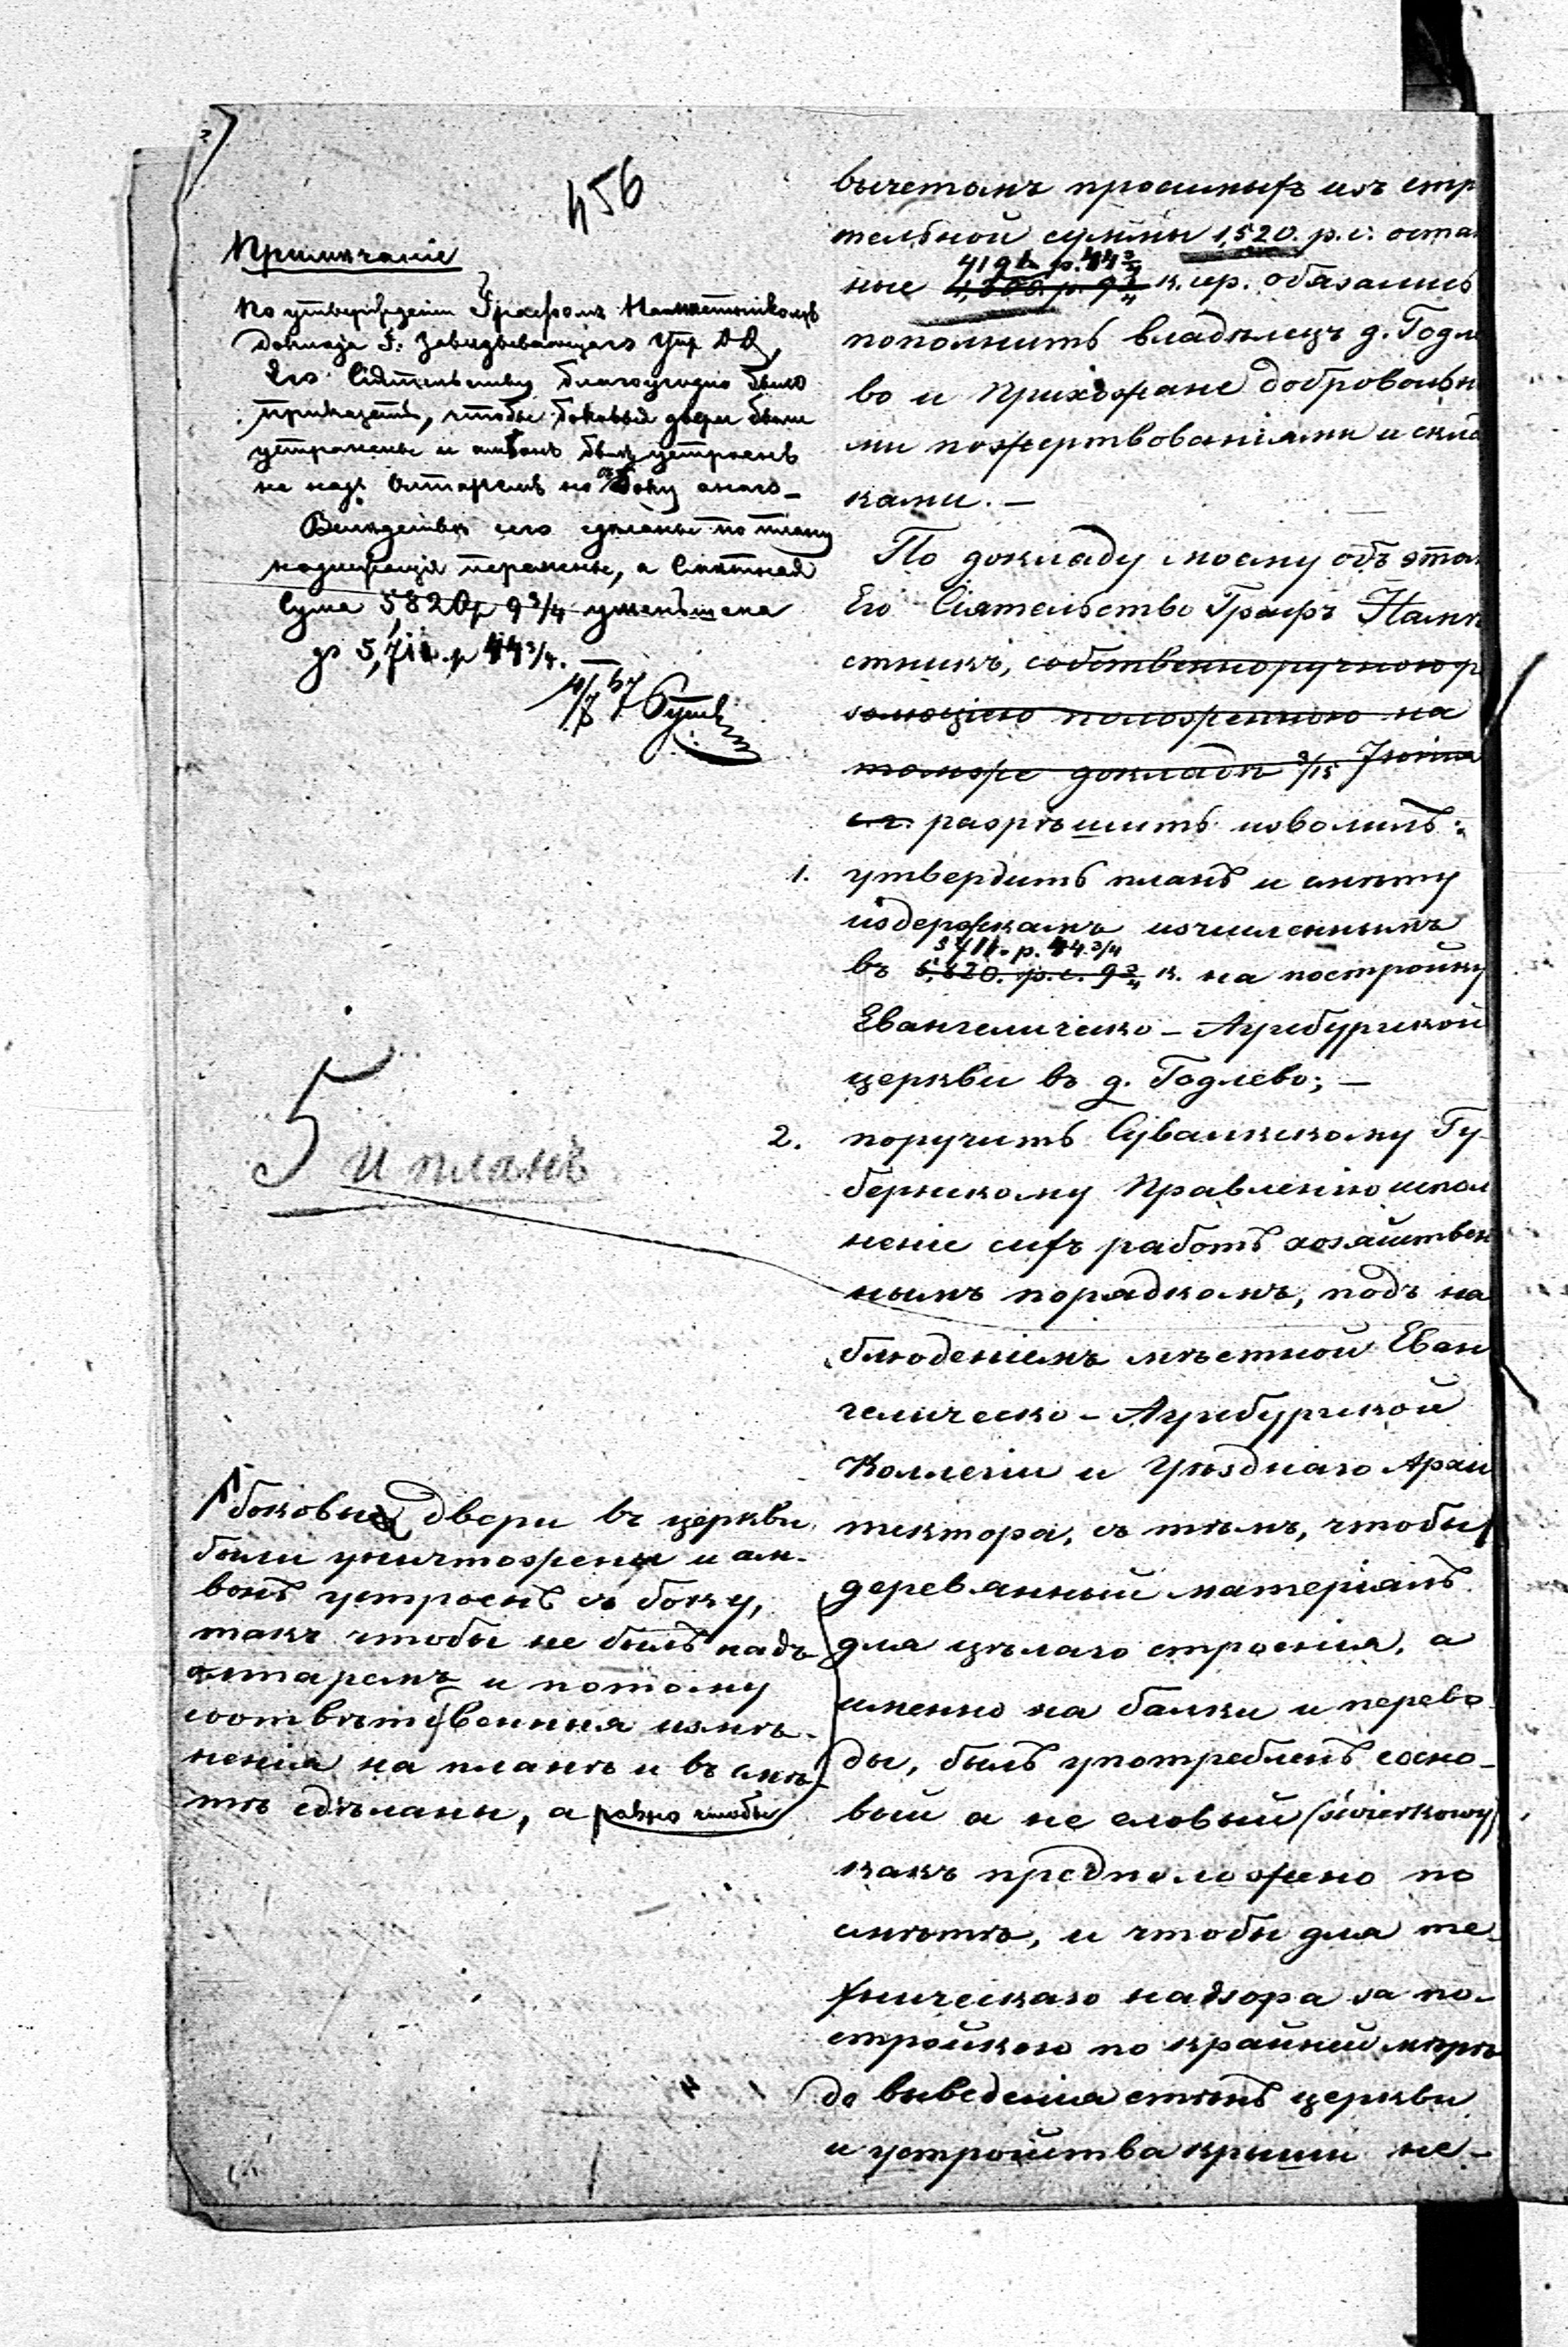 456
Примѣчаніе
По утвержденіи Графомъ Намѣстникомъ
доклада Г. Завѣдывающаго Упр. ДД,
Его Сіятельству благоугодно было
приказать, чтобы боковыя двери были
устранены и амвонъ былъ устроенъ
не надъ Олтаремъ но съ боку онаго —
Вслѣдствіе сего сдѣланы по плану
надлежащія перемѣны, а смѣтная
Сума 5,820 р 9 3/4 уменьшена
до 5,711. р 44 3/4. —
5 и планъ
боковыя двери въ церкви
были уничтожены и ам-
вонъ устроенъ съ боку,
такъ чтобы не былъ надъ
алтаремъ и потому
соотвѣтственныя измѣ-
ненія на планѣ и въ смѣ-
тѣ сдѣланы, а равно чтобы
вычетомъ просимыхъ изъ стр
тельной суммы 1,520. р. с. оста
4191 р. 44 3/4
ные 4,300 р. 9 3/4 к. сер. обязались
пополнить владѣлецъ д. Годле
во и прихожане добровольн
ми пожертвованіями и скла
ками. —
По докладу моему объ этом
Его Сіятельство Графъ Намѣ
стникъ, собственноручною р
золюціею положенною на
томже докладѣ 3/15 Іюня
с. г. разрѣшить изволилъ:
1. утвердить планъ и смѣту
издержкамъ исчисленнымъ
5711. р. 44. 3/4
въ 5,820. р. с. 9 3/4 к. на постройку
Евангелическо-Аугсбургской
церкви въ д. Годлево; —
2. поручить Сувалкскому Гу-
бернскому Правленію испол
неніе сихъ работъ хозяйствен
нымъ порядкомъ, подъ на
блюденіемъ мѣстной Еван
гелическо-Аугсбургской
Коллегіи и Уѣзднаго Архи
тектора, съ тѣмъ, чтобы
деревянный матеріалъ
для цѣлаго строенія, а
именно на балки и перево
ды, былъ употребленъ сосно-
вый а не еловый (świerkowy)
какъ предположено по
смѣтѣ, и чтобы для те-
хническаго надзора за по-
стройкою по крайней мѣрѣ
до выведенія стѣнъ церкви
и устройства крыши не-